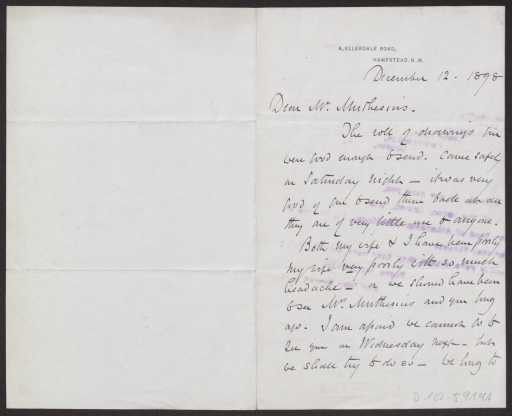 6, ELLERDALE ROAD,
HAMPSTEAD. N.W.
December 12 . 1898
Dear Mr. Muthesius.
The roll of drawings you
were good enough to send. Came safely
on Saturday night — it was very
good of you to send them back
they are of very little use to anyone.
Both my wife & I have been poorly
my wife very poorly with so much
headache — or we should have been
to see Mrs. Muthesius and you long
ago. I am afraid we cannot go to
see you on Wednesday next — but
we shall try to do so — we long to
D 102-5914A